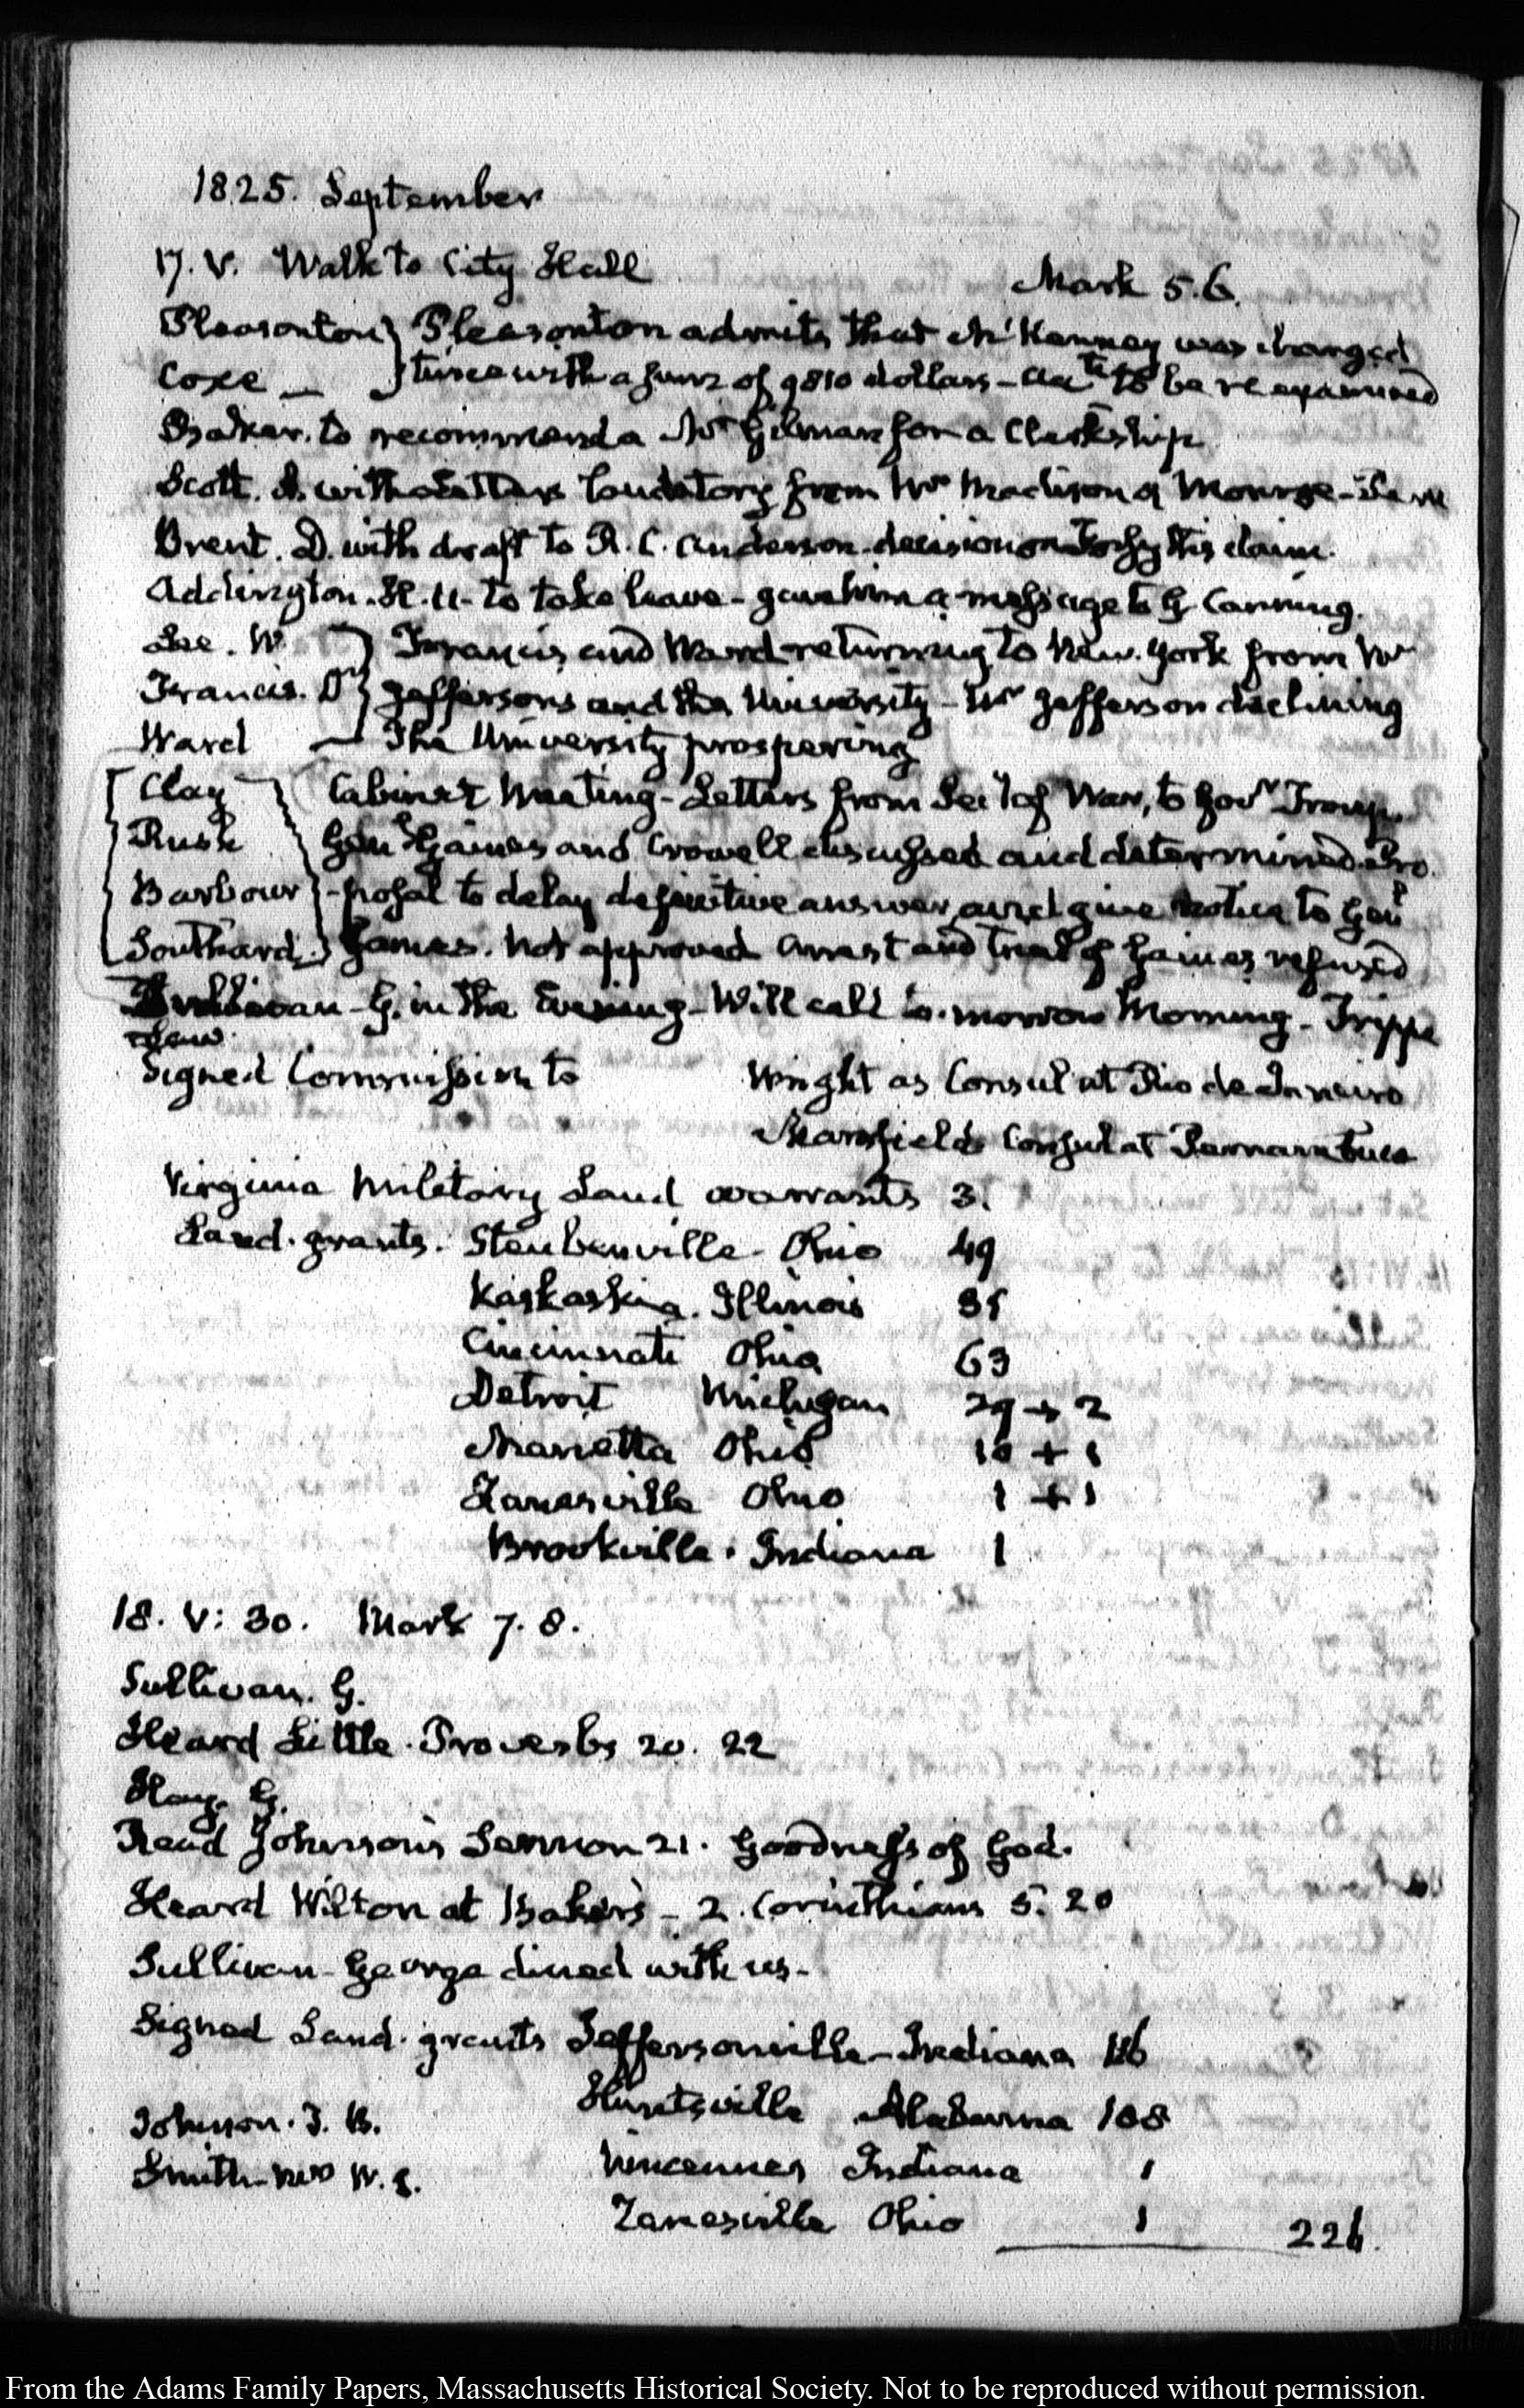 1825. September
17. V. Walk to City Hall Mark 5.6.
Pleasonton Pleasonton admits that McKenney was charged
Coxe — twice with a sum of 9810 dollars - Accts to be reexamined
to recommend a Mr Gilman for a Clerkship
Scott. with letters laudatory from Mr Madison & Monroe -
Brent. D. with draft to R. C. Anderson - decision on claim.
Addington. H. U - to take leave - gave him a message to G Canning.
Lee. W. Francis and Ward returning to New-York from Mr
Francis. Dr Jefferson's and the University - Mr Jefferson declining
Ward — The University prospering
Clay Cabinet Meeting - Letters from Secy of War, to Govr Troup,
Rush Genl Gaines and Crowell discussed and determined. Pro-
Barbour -posal to delay definitive answer, and give notice to Genl
Southard. Gaines. Not approved Arrest and trial of Gaines refused
Sullivan - G. in the Evening - Will call to-morrow Morning - Trippe
Signed Commission to Wright as Consul at Rio de Janeiro
Mansfield Consul at Parnambuco
Virginia Military Land warrants 3.
Land-grants. Steubenville - Ohio 49
Kaskaskia. Illinois
Cincinnati Ohio 63
Detroit Michigan 29 + 2
Marietta Ohio 10 + 1
Zanesville Ohio 1 + 1
Brookville. Indiana 1
18. V: 30. Mark 7. 8.
Sullivan. G.
Heard Little. Proverbs 20. 22
Hay. G.
Read Johnson's Sermon 21. Goodness of God.
Heard Wilton at Baker's - 2. Corinthians 5. 20
Sullivan - George dined with us -
Signed Land-grants Jeffersonville - Indiana 116
Huntsville Alabama 108
Johnson. J. B.
Vincennes Indiana 1
Smith - Mrs W. S.
Zanesville Ohio 1 226.
From the Adams Family Papers, Massachusetts Historical Society. Not to be reproduced without permission.